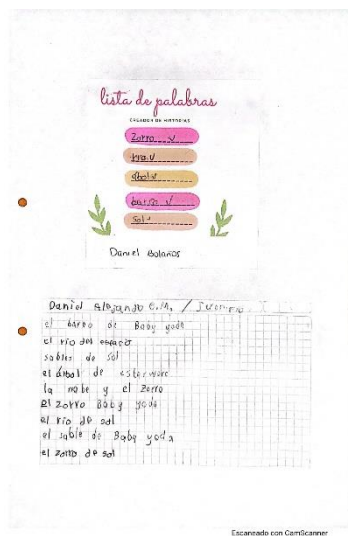 lista de palabras
CREADOR DE HISTORIAS
Zorro
rio
arbol
barro
sol
Daniel Bolaños
Daniel Alejandro
el barro de Baby yoda
el rio del espacio
sables de sol
el arbol de
la nube y el Zorro
El zorro Baby yoda
el rio de sol
el sable de Baby yoda
el zorro de sol
Escaneado con CamScanner